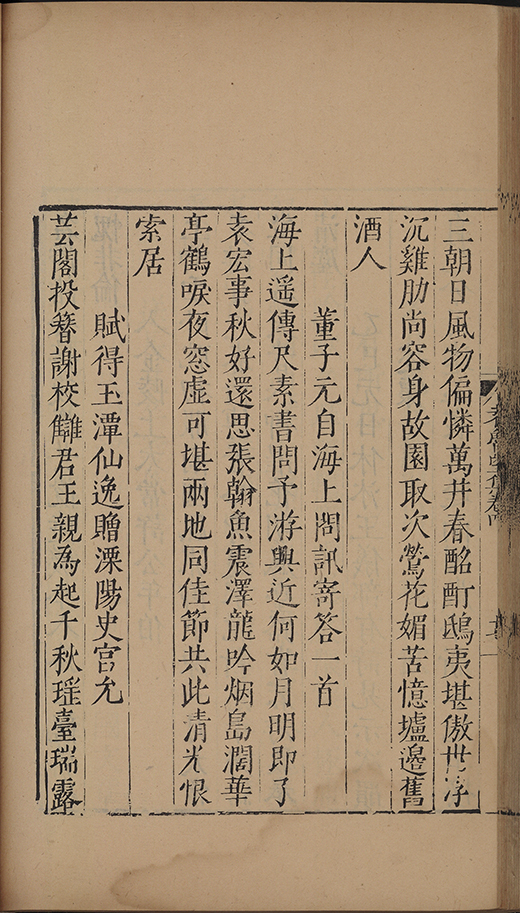 三朝日風物偏憐萬井春酩酊鴟夷堪傲世浮
沉雞肋尚容身故園取次鶯花媚苦憶壚邊舊
酒人
董子元自海上問訊寄答一首
海上遥傳尺素書問予游興近何如月明即了
袁宏事秋好還思張翰魚震澤龍吟烟島濶華
亭鶴唳夜窓虛可堪兩地同佳節共此清光恨
索居
賦得玉潭仙逸贈溧陽史宫允
芸閣投簪謝校讎君王親為起千秋瑶臺瑞露